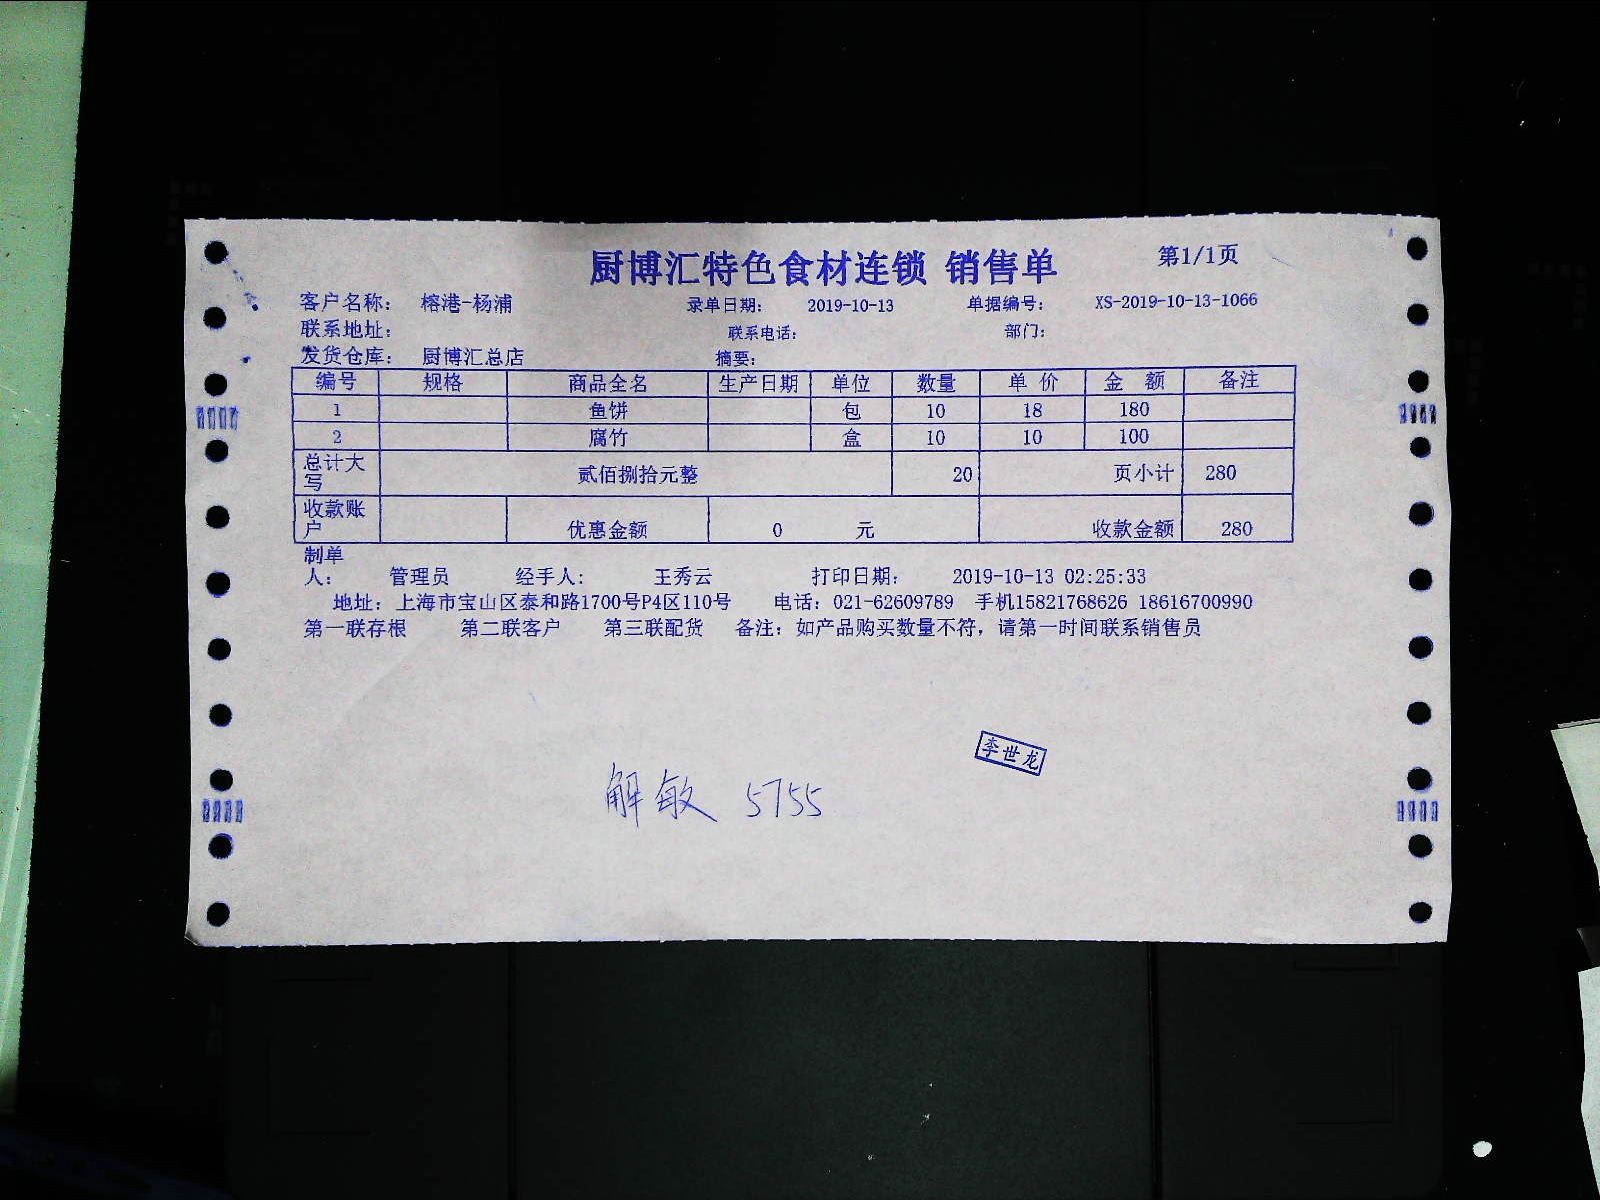 厨博汇特色食材连锁 销售单 第1/1页
客户名称： 榕港-杨浦 录单日期： 2019-10-13 单据编号： XS-2019-10-13-1066
联系地址： 联系电话： 部门：
发货仓库： 厨博汇总店 摘要：
编号 规格 商品全名 生产日期 单位 数量 单 价 金 额 备注
1 鱼饼 包 10 18 180
2 腐竹 盒 10 10 100
总计大写 贰佰捌拾元整 20 页小计 280
收款账户 优惠金额 0 元 收款金额 280
制单人： 管理员 经手人： 王秀云 打印日期： 2019-10-13 02:25:33
地址：上海市宝山区泰和路1700号P4区110号 电话：021-62609789 手机15821768626 18616700990
第一联存根 第二联客户 第三联配货 备注：如产品购买数量不符，请第一时间联系销售员
李世龙
解敏 5755